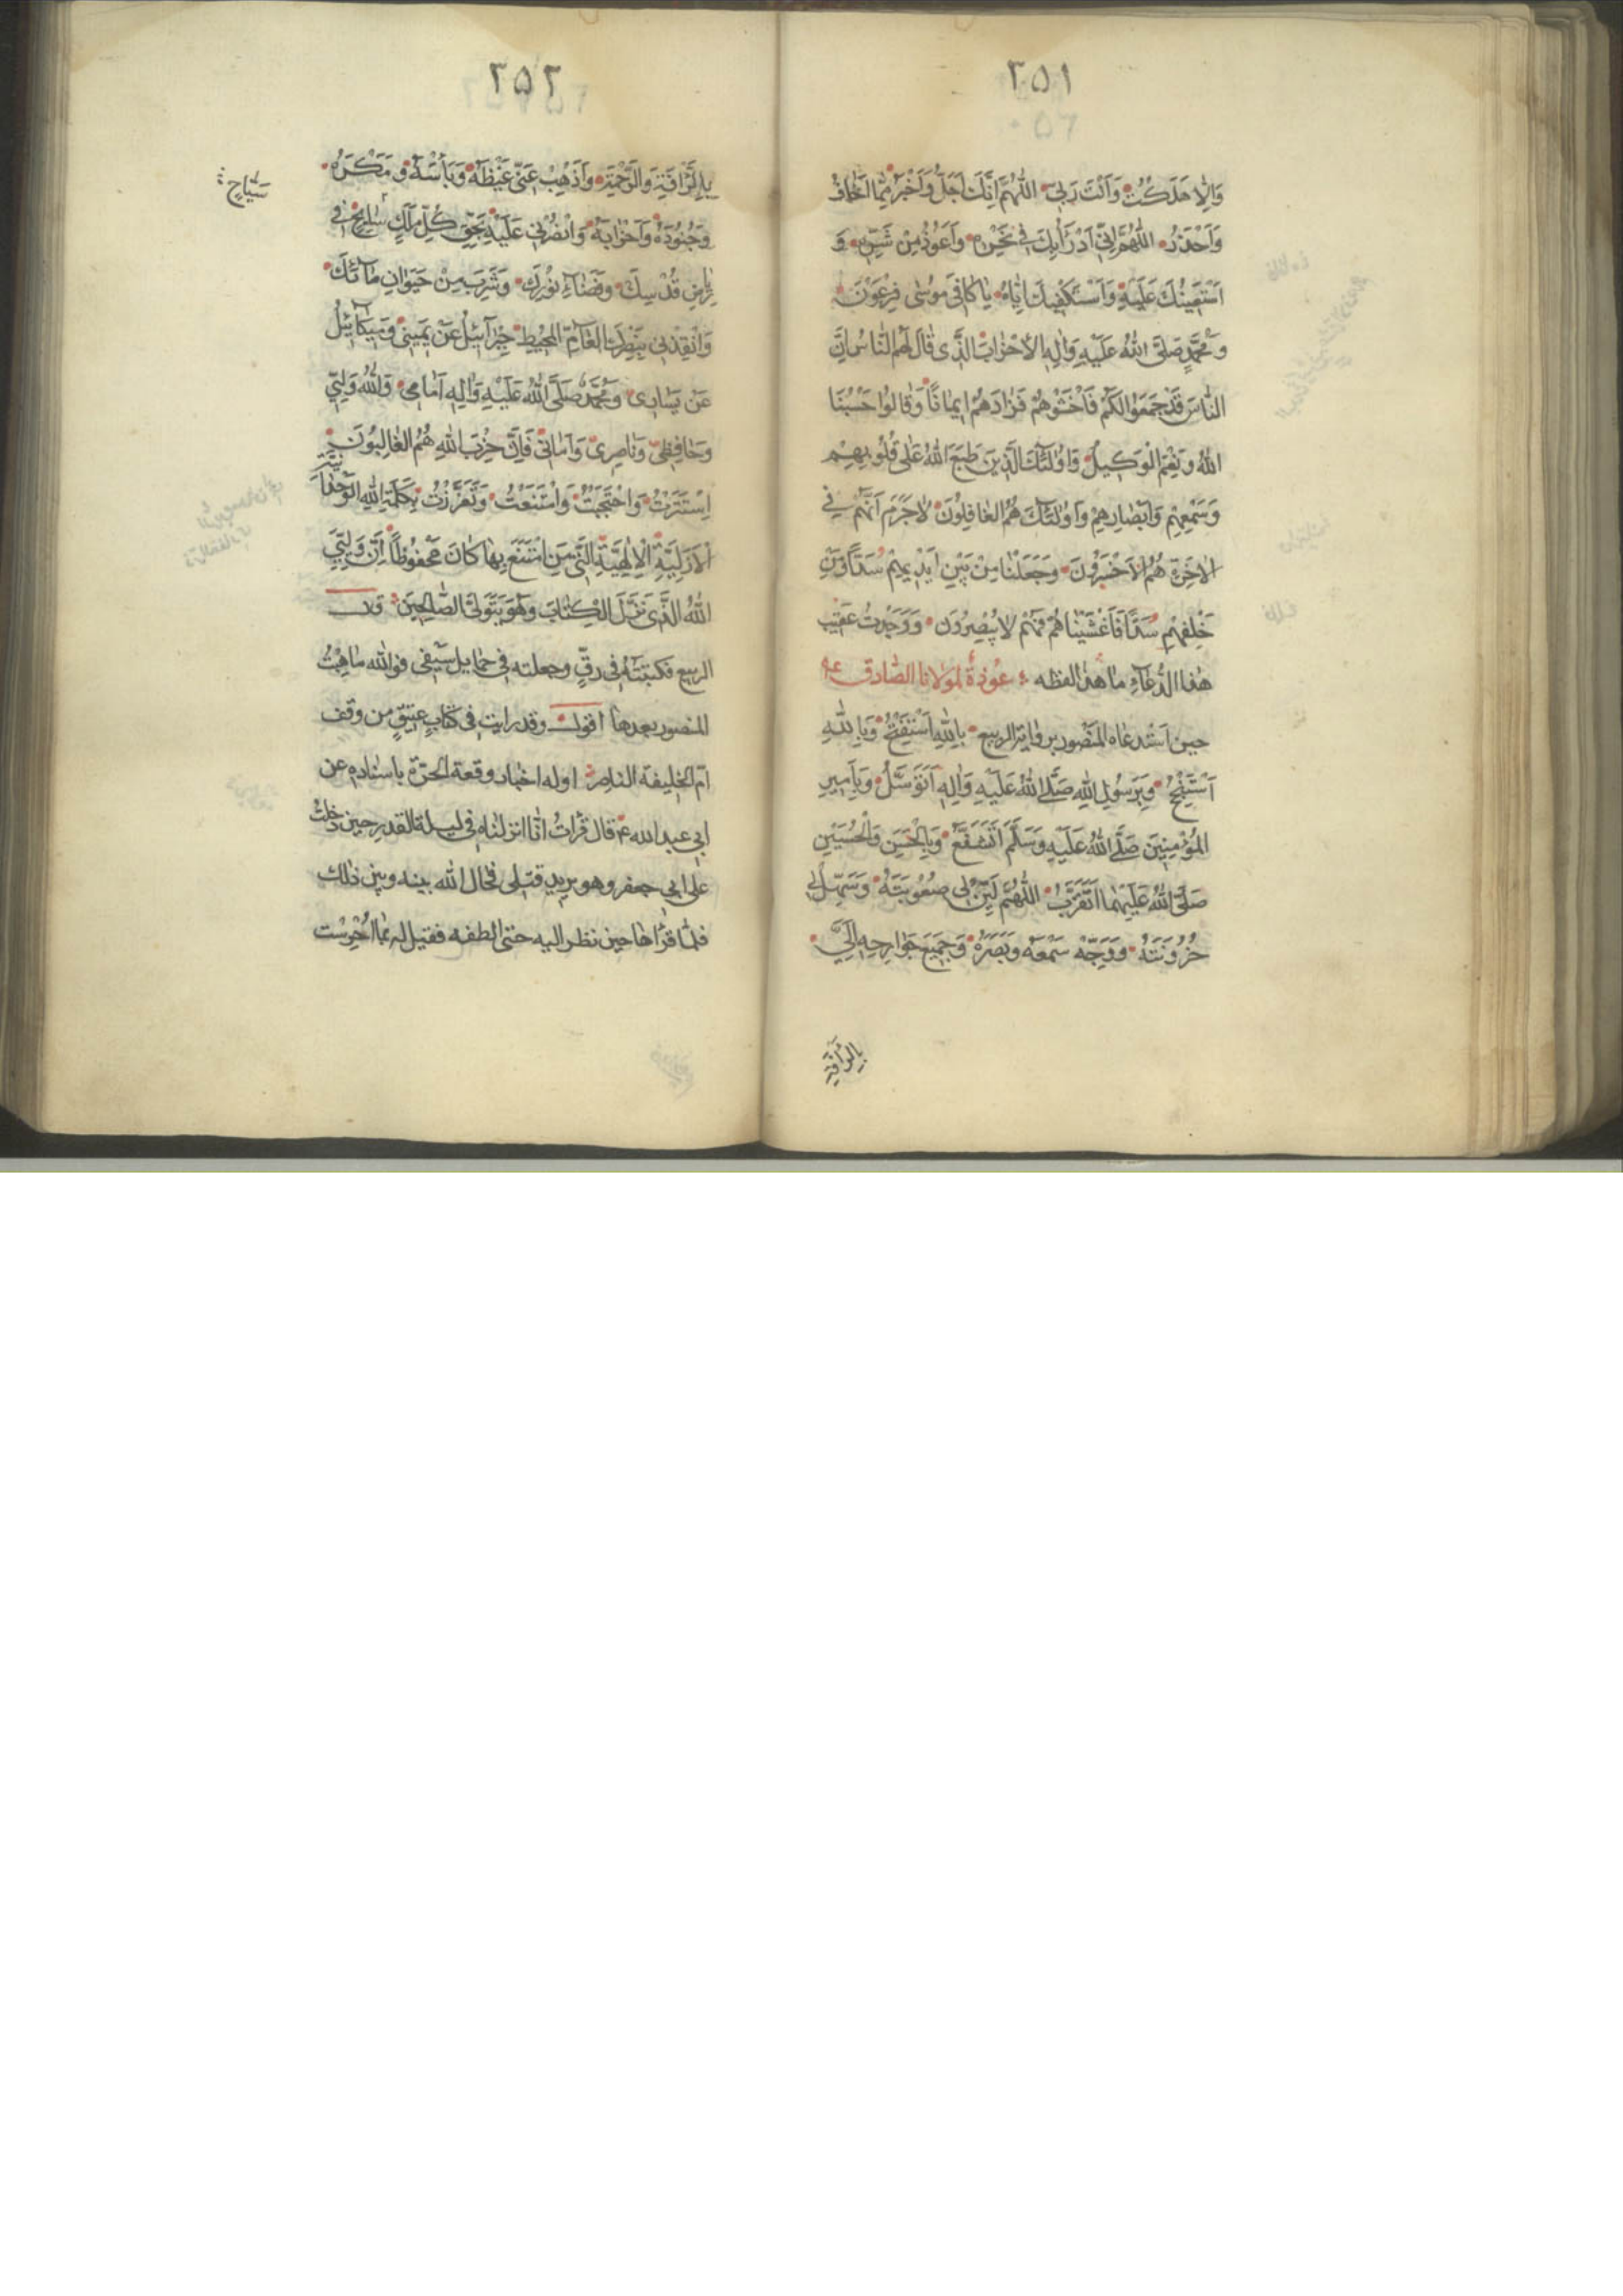 ٢٥١
وَاِلاّ هَلَكْتُ وَاَنْتَ رَبّى اللّهُمَّ اِنَّكَ اَجَلُّ وَاَخْبَرُ مِمّا اَخافُ
وَاَحْذَرُ اللّهُمَّ اِنّى اَدْرَأُ بِكَ فى نَحْرِهِ وَاَعُوذُ مِنْ شَرِّهِ وَ
اَسْتَعينُكَ عَلَيْهِ وَاَسْتَكْفيكَ اِيّاهُ يا كافِىَ مُوسى فِرْعَوْنَ
وَ مُحَمَّدٍ صَلَّى اللّهُ عَلَيْهِ وَالِهِ الاَحْزابَ الَّذى قالَ لَهُمُ النّاسُ اِنَّ
النّاسَ قَدْ جَمَعُوا لَكُمْ فَاخْشَوْهُمْ فَزادَهُمْ ايمانًا وَقالُوا حَسْبُنَا
اللّهُ وَنِعْمَ الْوَكيلُ وَاُولئِكَ الَّذينَ طَبَعَ اللّهُ عَلى قُلُوبِهِمْ
وَسَمْعِهِمْ وَاَبْصارِهِمْ وَاُولئِكَ هُمُ الغافِلُونَ لا جَرَمَ اَنَّهُمْ فِى
الاخِرَةِ هُمُ الاَخْسَرُونَ وَجَعَلْنا مِنْ بَيْنِ اَيْديهِمْ سَدًّا وَمِنْ
خَلْفِهِمْ سَدًّا فَاَغْشَيْناهُمْ فَهُمْ لا يُبْصِرُونَ وَوَجَدْتُ عَقيبَ
هذا الدُّعاءِ ما هذا لفظه عُوذة لمولانا الصّادق ع
حين استدعاه المَنْصُور برواية الربيع بِاللّهِ اَسْتَفْتِحُ وَبِاللّهِ
اَسْتَنْجِحُ وَبِرَسُولِ اللّهِ صَلَّى اللّهُ عَلَيْهِ وَالِهِ اَتَوَسَّلُ وَبِاَميرِ
المُؤْمِنينَ صَلَّى اللّهُ عَلَيْهِ وَسَلَّمَ اَتَشَفَّعُ وَبِالْحَسَنِ وَالْحُسَيْنِ
صَلَّى اللّهُ عَلَيْهِما اَتَقَرَّبُ اللّهُمَّ لَيِّنْ لى صُعُوبَتَهُ وَسَهِّلْ لى
حُزُونَتَهُ وَوَجِّهْ سَمْعَهُ وَبَصَرَهُ وَجَميعَ جَوارِحِهِ اِلَىَّ
بِالرَّأفَةِ
٢٥٢
بِالرَّافَةِ وَالرَّحْمَةِ وَاَذْهِبْ عَنّى غَيْظَهُ وَبَأْسَهُ وَ مَكْرَهُ
وَجُنُودَهُ وَاَحْزابَهُ وَانْصُرْنى عَلَيْهِ بِحَقِّ كُلِّ مَلَكٍ سٰايحٍ فى
رِياضِ قُدْسِكَ وَفَضاءِ نُورِكَ وَشَرِبَ مِنْ حَيَوانِ مائِكَ
وَانْقِذْنى بِنَصْرِكَ العامِّ المُحيطِ جِبْرائيلُ عَنْ يَمينى وَميكائيلُ
عَنْ يَسارى وَمُحَمَّدٌ صَلَّى اللّهُ عَلَيْهِ وَالِهِ اَمامى وَاللّهُ وَلِيّى
وَحافِظى وَناصِرى وَاَمانى فَاِنَّ حِزْبَ اللّهِ هُمُ الغالِبُونَ
اِسْتَتَرْتُ وَاحْتَجَبْتُ وَامْتَنَعْتُ وَتَعَزَّزْتُ بِكَلِمَةِ اللّهِ الوَحْدانِيَّةِ
الاَزَلِيَّةِ الاِلهِيَّةِ الَّتى مَنِ امْتَنَعَ بِها كانَ مَحْفُوظًا اِنَّ وَلِيِّىَ
اللّهُ الَّذى نَزَّلَ الكِتابَ وَهُوَ يَتَوَلَّى الصّالِحينَ قال
الربيع فكتبته فى رقٍّ وجعلته فى حمايل سيفى فوالله ما هِبْتُ
المنصور بعدها اقول وقد رايت فى كتابٍ عتيقٍ من وقف
امّ الخليفة الناصر اوله اخبار وقعة الحرّة باسناده عن
ابى عبد الله ع قال قرأتُ انّا انزلناه فى ليلة القدر حين دخلتُ
على ابى جعفر وهو يريد قتلى فحال الله بينه وبين ذلك
فلمّا قرأها حين نظر اليه حتى الطفه فقيل له بما احْتَرَسْت
سَيّاح